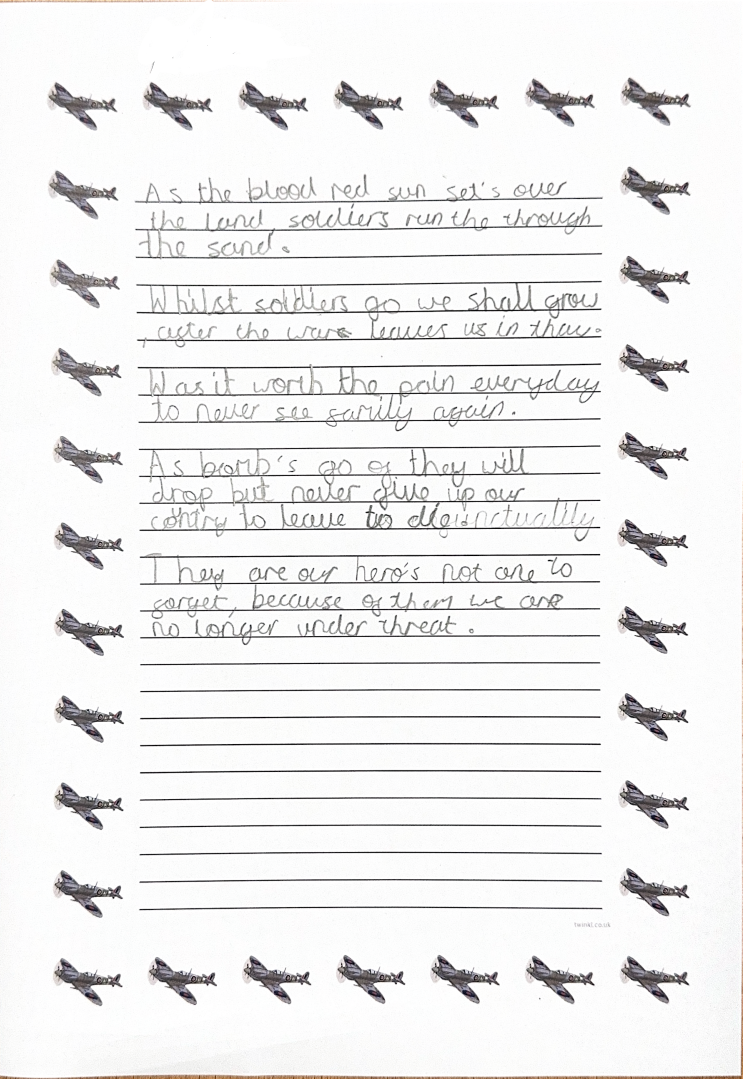 As the blood red sun set's over
the land, soldiers run the through
the sand.
Whilst soldiers go we shall grow
, after the ware leaves us in thaw.
Was it worth the pain everyday
to never see family again.
As bomb's go of they will
drop but never give up our
contry to leave to
They are our hero's not one to
forget, because of them we are
no longer under threat.
twinkl.co.uk